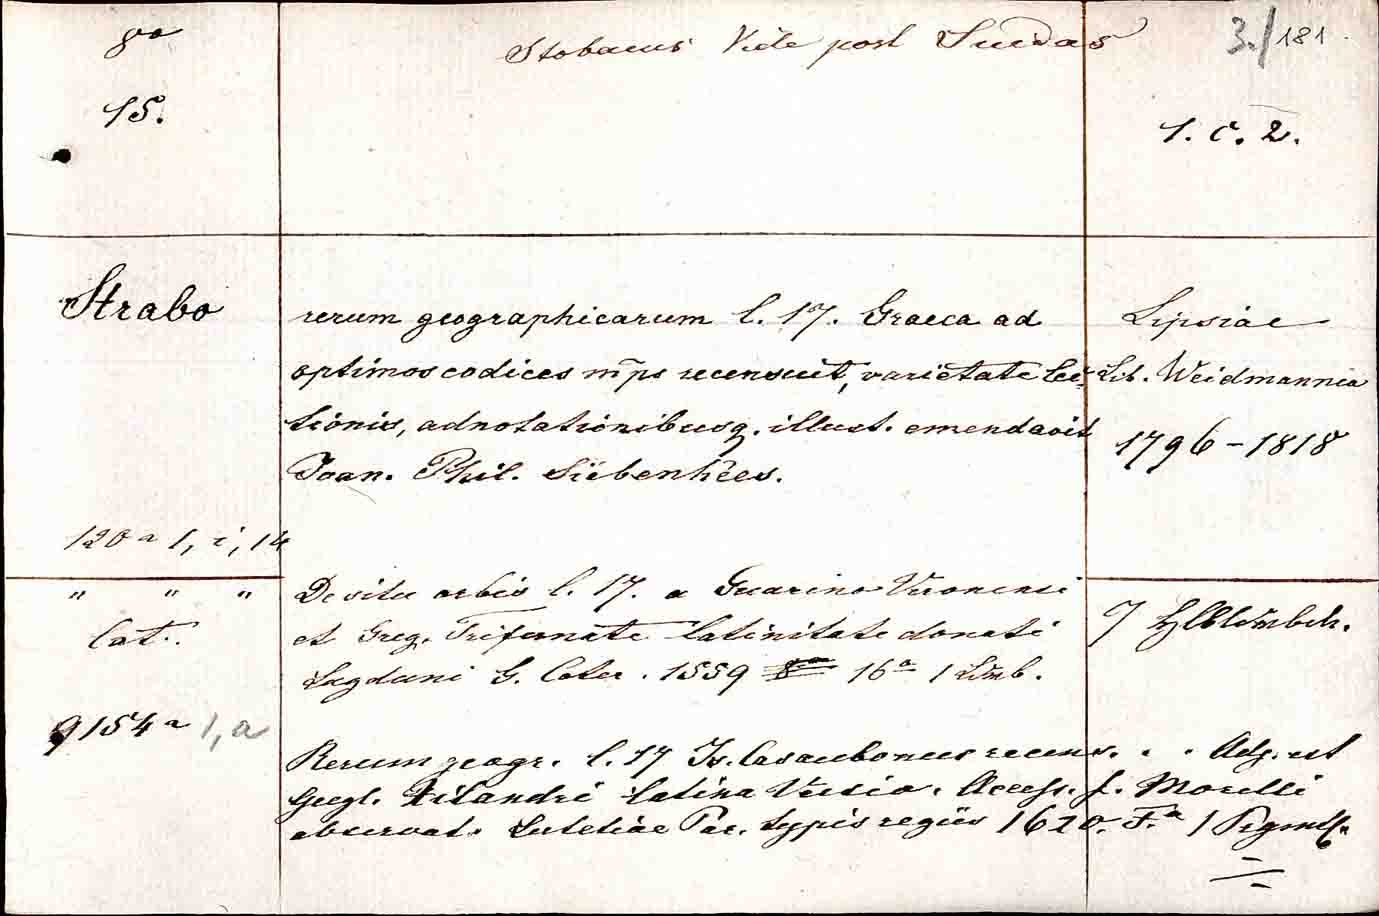 8vo
Stobaeus Vide post Suidas
3./181.
15.
1. c. 2.
Strabo
rerum geographicarum l. 17. Graeca ad
optimos codices mps recensuit, varietate lec-
tionis, adnotationibusq. illust. emendavit
Joan. Phil. Siebenkees.
Lipsiae
Lib. Weidmannia
1796-1818
120 a 1, i, 14
" " "
Lat.
9154 a 1, a
De situ orbis l. 17. a Guarino Veronensi
et Greg. Trifernate latinitate donati
Lugduni G. Coter. 1559 16a 1
7
Rerum geogr. l. 17 Is. Casaubonus recens. . . Adj. est
Gugl. Xilandri latina Versio. Access. f. Morelli
observat. Lutetiae Par. typis regiis 1620. Fa 1